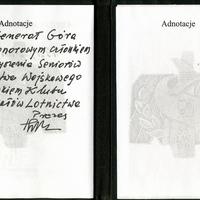 Adnotacje
Generał Góra
onorowym członkiem
yszenia Seniorów
twa Wojskowego
kiem Klubu
ałów Lotnictwa
Prezes
Adnotacje